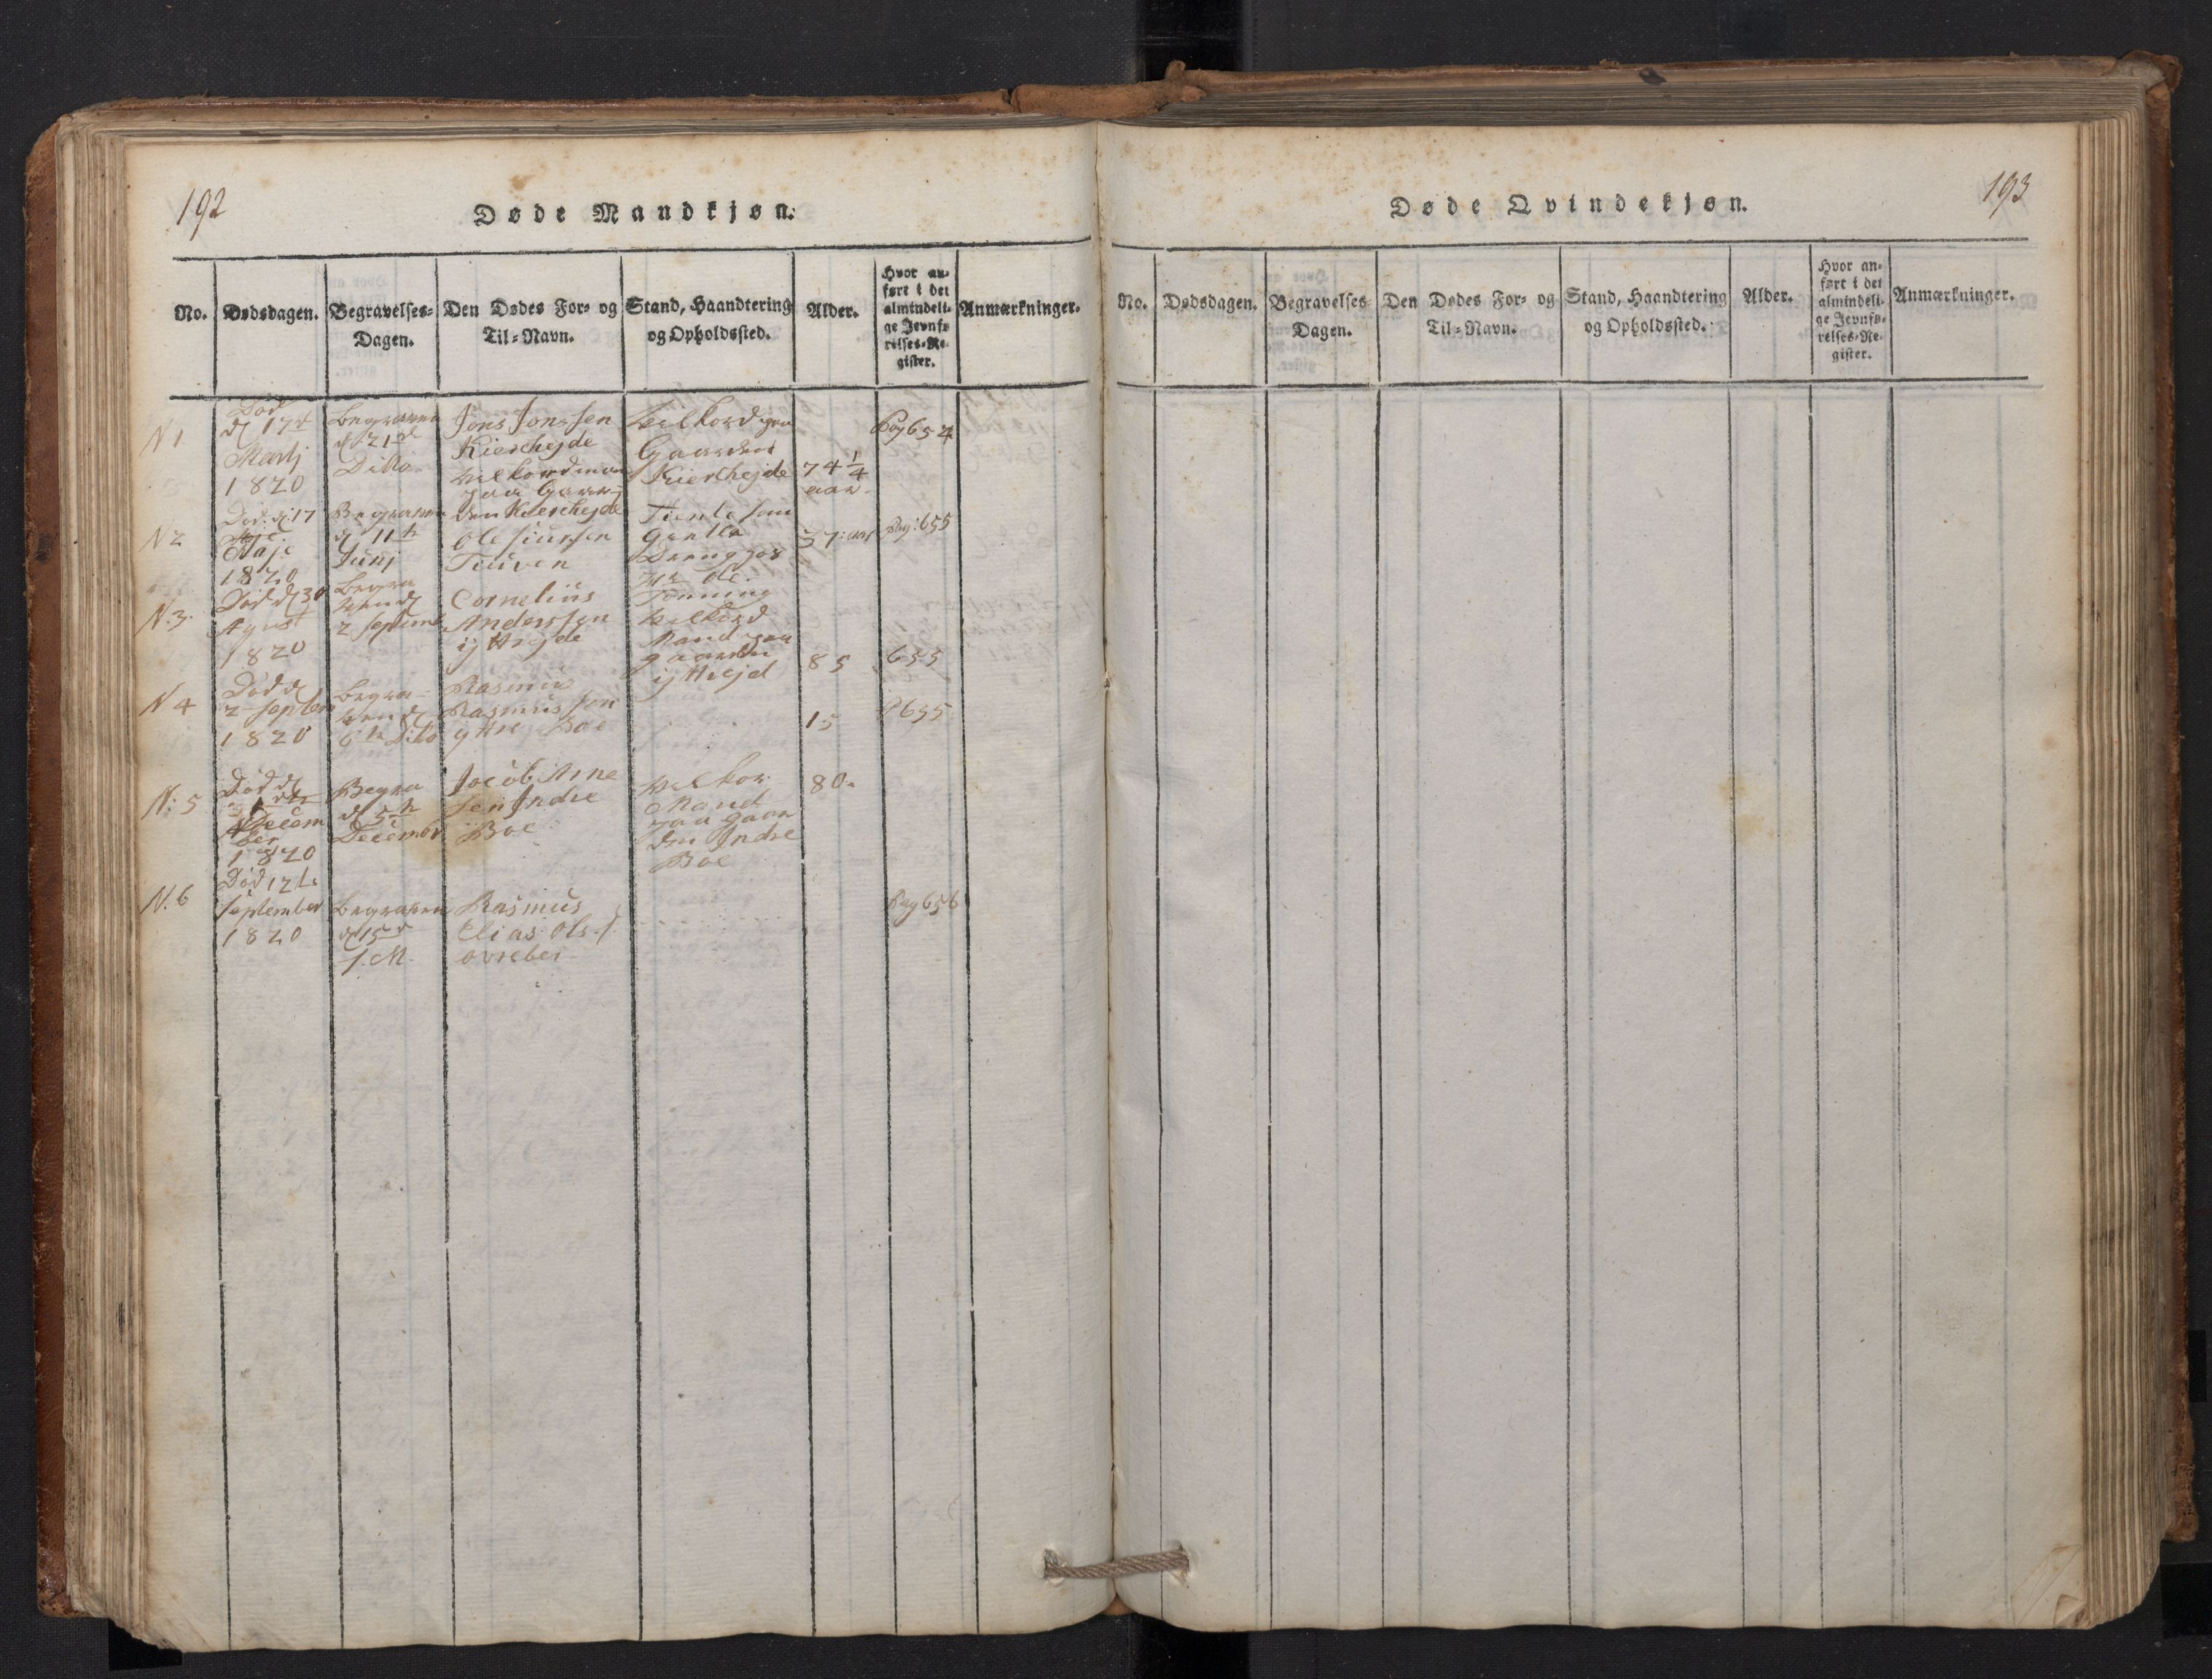 192
Døde Mandkjøn.
No.
Dødsdagen.
Begravelses-
Dagen.
Den Dødes For- og
Til-Navn.
Stand, Haandtering
og Opholdssted.
Alder.
Hvor an-
ført i det
almindeli-
ge Jevnfø-
relses-Re-
gister.
Anmærkninger.
N 1
Død
d 17d
Martj
1820
begraven
d 21de
Ditto
Jons Jonssen
Kierchejde
Kierchejde
Gaarden
Kierchejde
74 1/4
aar
Pag 654
N 2
Død d 17
Maji
1820
Begraven
d 11te
Junj
Ole
37: aar
Pag: 655
N. 3.
Død d 30
Agust
1820
begra
ven d
2 Septem
Cornelius
Anderssen
Tønning
Mand
gaarden
85
655
N 4
Død d
2 Septem
1820
begra-
ven d
6te Ditto
Rasmus
Rasmussen
yttre Boe
15
P 655
N: 5
Død d
Decem
ber
1820
Begra
d 5te
Decembr
Jacob Arne
sen Indre
Boe
vilkor
Mand
paa gaar
den Indre
Boe
80.
N. 6
Død 12te
September
1820
begraven
d 15d
s. M.
Rasmus
Elias Ols
ovrebøe
Pag 656
193
Døde Qvindekjøn.
No.
Dødsdagen.
Begravelses-
Dagen.
Den Dødes For- og
Til-Navn.
Stand, Haandtering
og Opholdssted.
Alder.
Hvor an-
ført i det
almindeli-
ge Jevnfø-
relses-Re-
gister.
Anmærkninger.